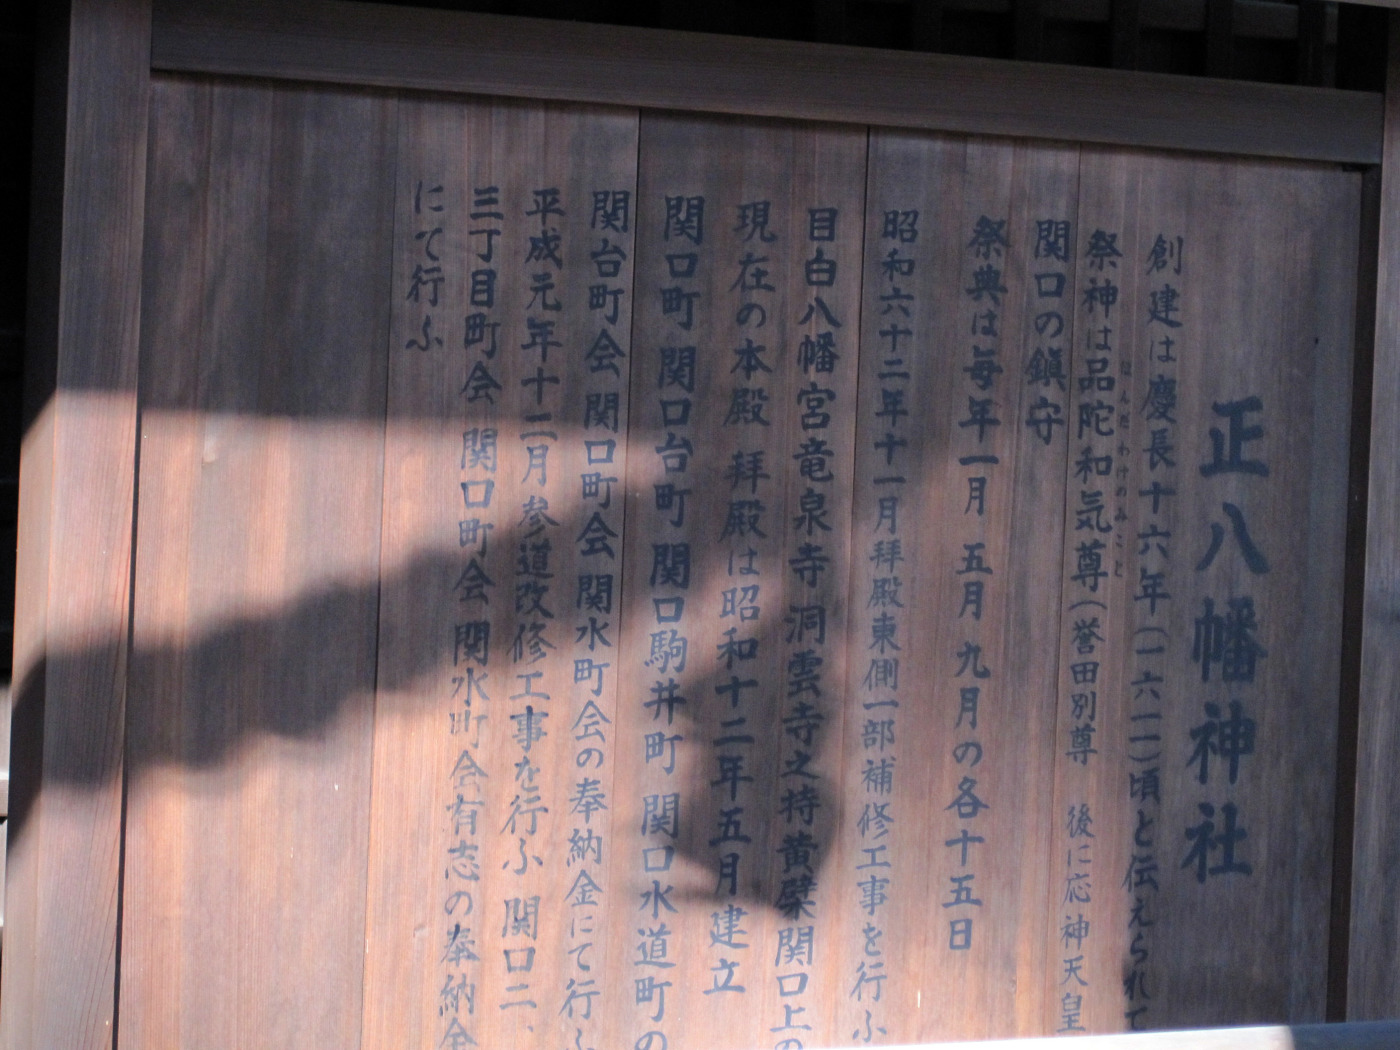 正八幡神社
創建は慶長十六年(一六一一)頃と伝えられて
祭神は品陀和気尊(誉田別尊 後に応神天皇
ほんだわけのみこと
関口の鎮守
祭典は毎年一月 五月 九月の各十五日
昭和六十二年十一月拝殿東側一部補修工事を行ふ
目白八幡宮竜泉寺洞雲寺之持黄檗関口上の
現在の本殿 拝殿は昭和十二年五月建立
関口町 関口台町 関口駒井町 関口水道町の
関台町会 関口町会 関水町会の奉納金にて行ふ
平成元年十二月参道改修工事を行ふ 関口二、
三丁目町会 関口町会 関水町会有志の奉納金
にて行ふ